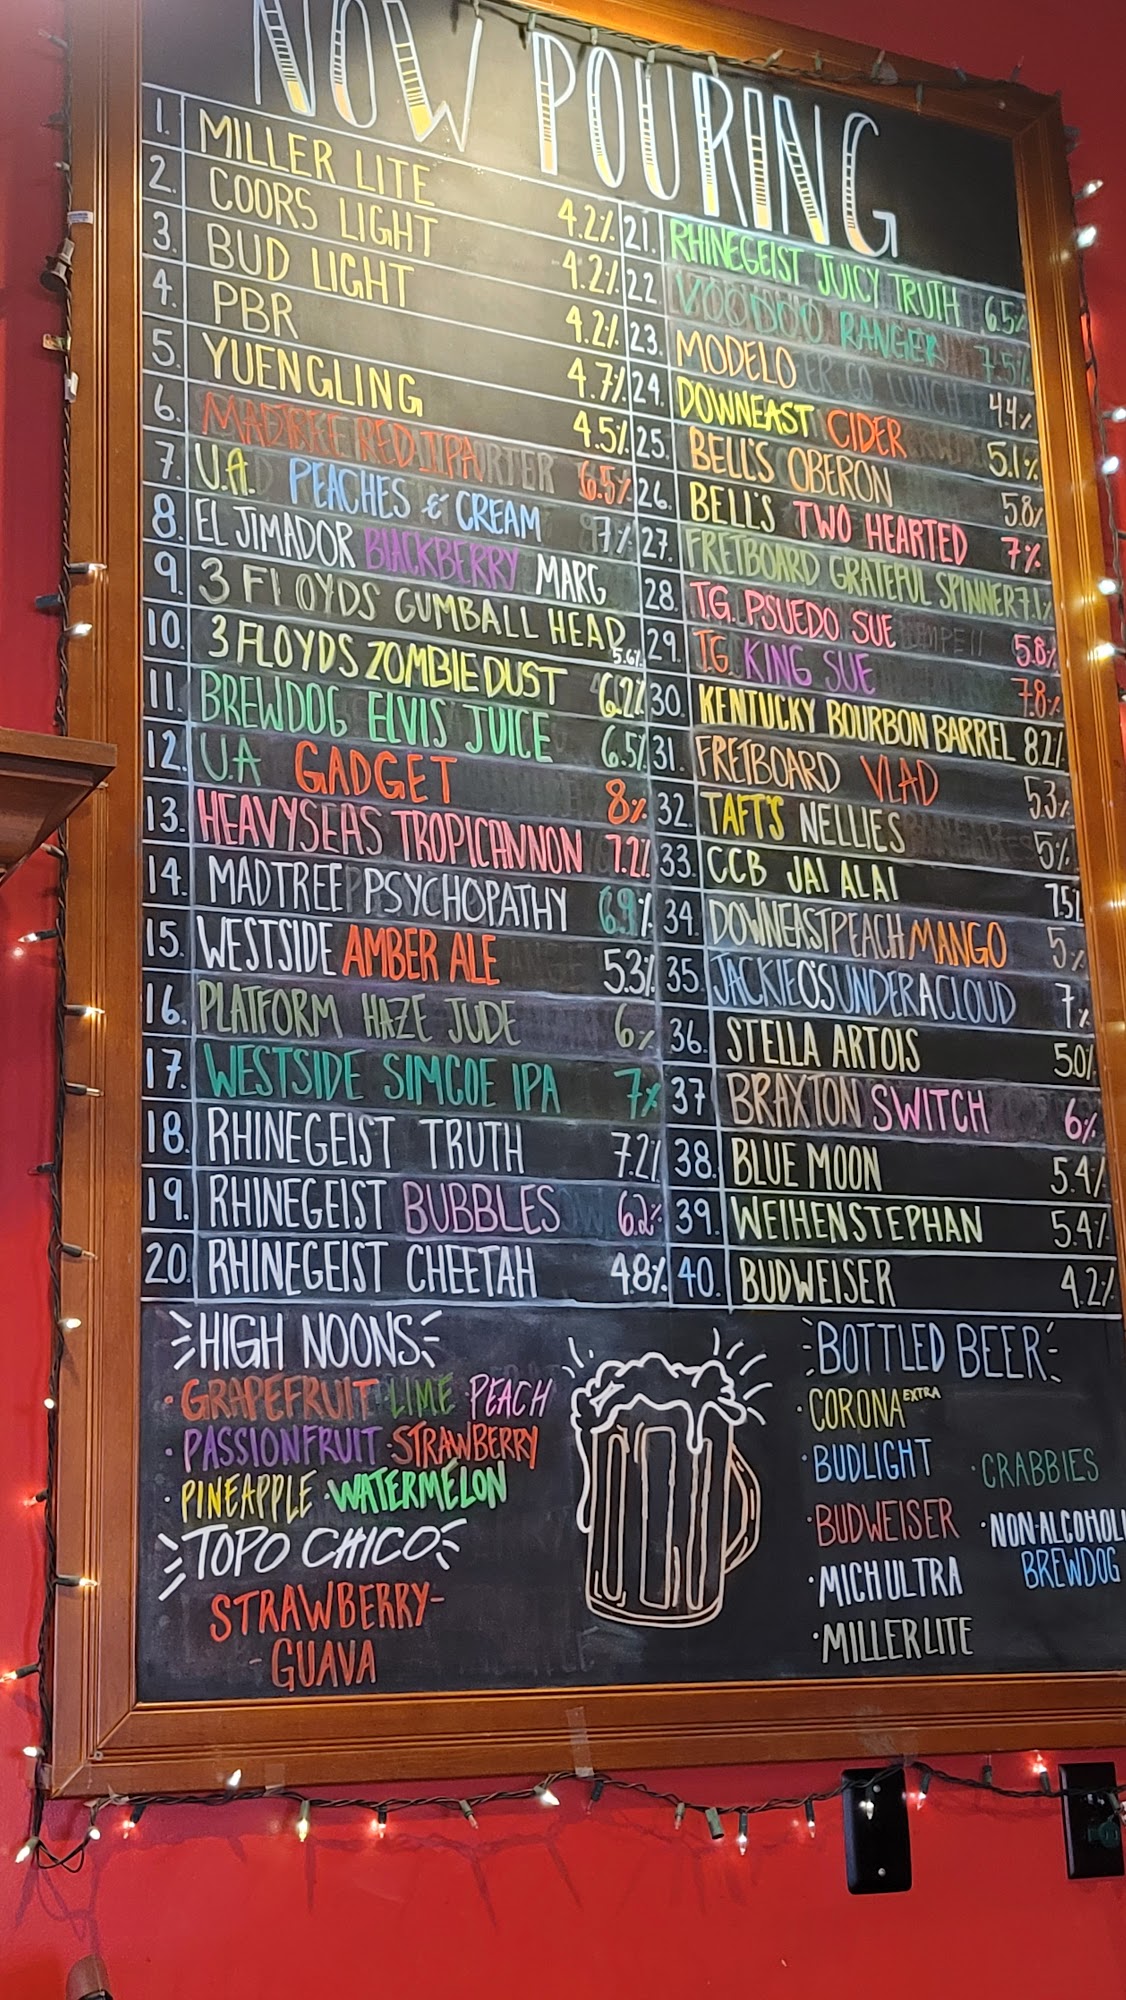 NOW POURING
1. MILLER LITE 4.2%
2. COORS LIGHT 4.2%
3. BUD LIGHT 4.2%
4. PBR 4.7%
5. YUENGLING 4.5%
6. MADTREE RED IPA 6.5%
7. U.A. PEACHES & CREAM 7%
8. EL JIMADOR BLACKBERRY MARG
9. 3 FLOYDS GUMBALL HEAD 5.6%
10. 3 FLOYDS ZOMBIE DUST 6.2%
11. BREWDOG ELVIS JUICE 6.5%
12. U.A GADGET 8%
13. HEAVYSEAS TROPICANNON 7.2%
14. MADTREE PSYCHOPATHY 6.9%
15. WESTSIDE AMBER ALE 5.3%
16. PLATFORM HAZE JUDE 6%
17. WESTSIDE SIMCOE IPA 7%
18. RHINEGEIST TRUTH 7.2%
19. RHINEGEIST BUBBLES 6.2%
20. RHINEGEIST CHEETAH 4.8%
21. RHINEGEIST JUICY TRUTH 6.5%
22. VOODOO RANGER 7.5%
23. MODELO 4.4%
24. DOWNEAST CIDER 5.1%
25. BELL'S OBERON 5.8%
26. BELL'S TWO HEARTED 7%
27. FRETBOARD GRATEFUL SPINNER 7.1%
28. T.G. PSUEDO SUE 5.8%
29. T.G. KING SUE 7.8%
30. KENTUCKY BOURBON BARREL 8.2%
31. FRETBOARD VLAD 5.3%
32. TAFT'S NELLIES 5%
33. CCB JAI ALAI 7.5%
34. DOWNEAST PEACH MANGO 5%
35. JACKIE O'S UNDER A CLOUD 7%
36. STELLA ARTOIS 5.0%
37 BRAXTON SWITCH 6%
38. BLUE MOON 5.4%
39. WEIHENSTEPHAN 5.4%
40. BUDWEISER 4.2%
HIGH NOONS
· GRAPEFRUIT · LIME · PEACH
· PASSIONFRUIT · STRAWBERRY
· PINEAPPLE · WATERMELON
TOPO CHICO
STRAWBERRY-
- GUAVA
BOTTLED BEER
· CORONA EXTRA
· BUDLIGHT
· BUDWEISER
· MICH ULTRA
· MILLER LITE
· CRABBIES
· NON-ALCOHOLI
BREWDOG